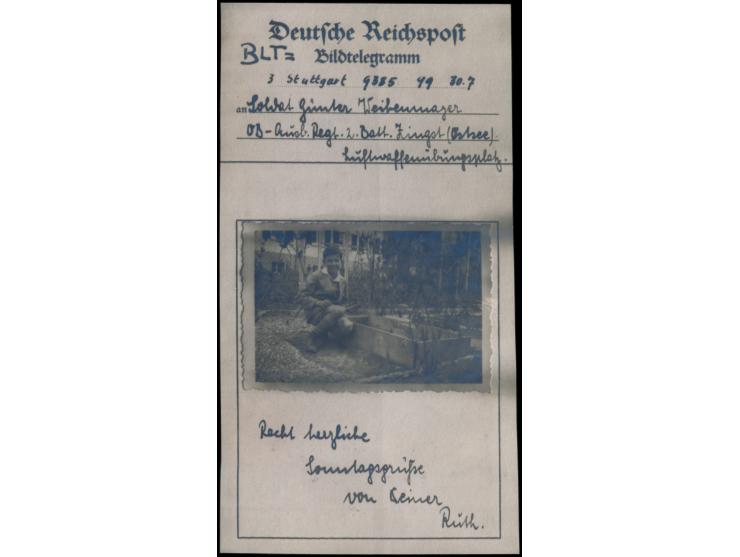 Deutsche Reichspost
BLT= Bildtelegramm
3 Stuttgart 9885 49 30.7
an Soldat Günter Weibenmayer
OB-Ausb. Regt. 2. Batt. Zingst (Ostsee)-
Luftwaffenübungsplatz.
Recht herzliche
Sonntagsgrüße
von Deiner
Ruth.